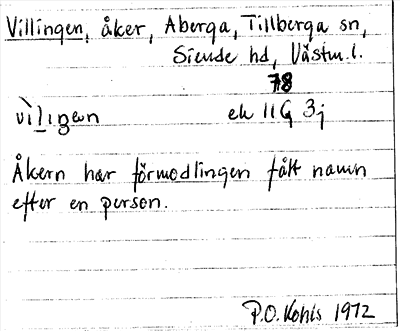 Villingen, åker, Aberga, Tillberga sn,
Siende hd, Västm. l.
78
vìlıgən ek 11G 3j
Åkern har förmodlingen fått namn
efter en person.
P.O. Kohls 1972